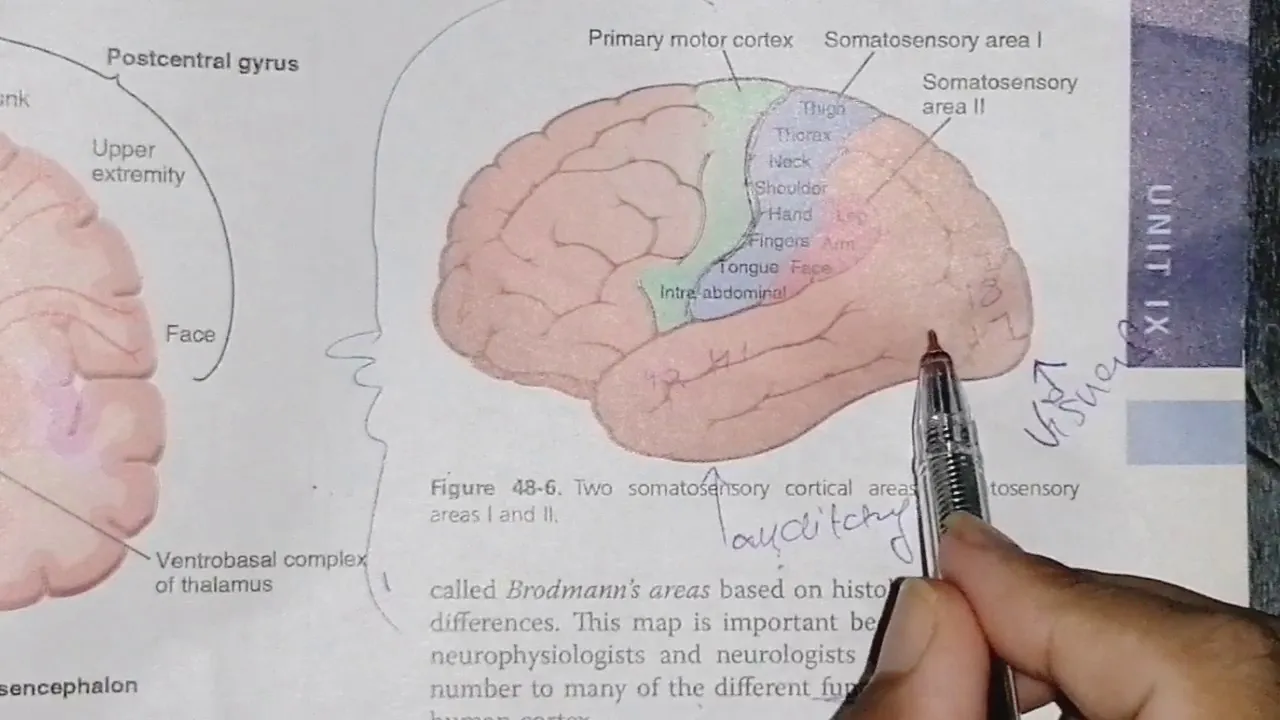 Postcentral gyrus
Upper
extremity
Face
Ventrobasal complex
of thalamus
sencephalon
Primary motor cortex
Somatosensory area I
Somatosensory
area II
Thigh
Thorax
Neck
Shoulder
Hand Leg
Fingers Arm
Tongue Face
Intra-abdominal
18
17
42 41
visual
auditory
Figure 48-6. Two somatosensory cortical areas tosensory
areas I and II.
called Brodmann's areas based on histo
differences. This map is important be
neurophysiologists and neurologists
number to many of the different fun
human cortex
UNIT IX